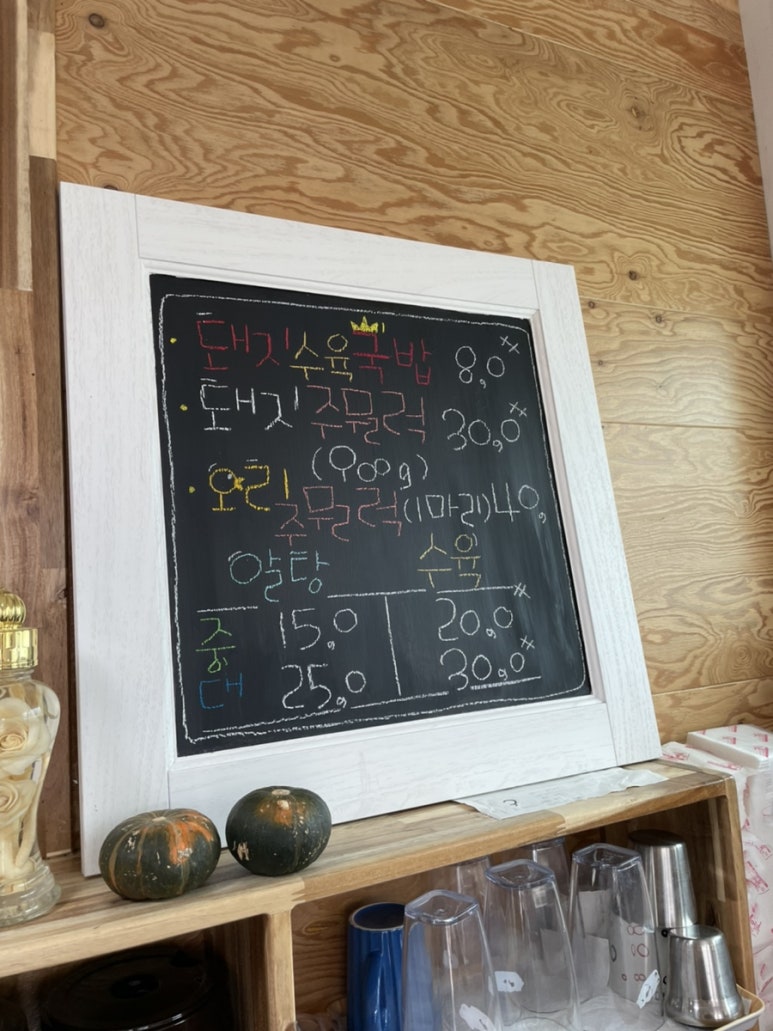 · 돼지수육국밥 8,0××
· 돼지주물럭 30,0××
(900g)
· 오리
주물럭(1마리)40,
알탕 수육
중 15,0 20,0××
대 25,0 30,0××